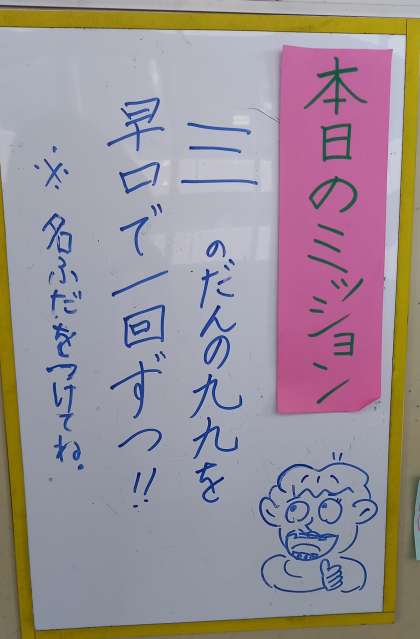 本日のミッション
三のだんの九九を
早口で一回ずつ!!
※名ふだをつけてね。